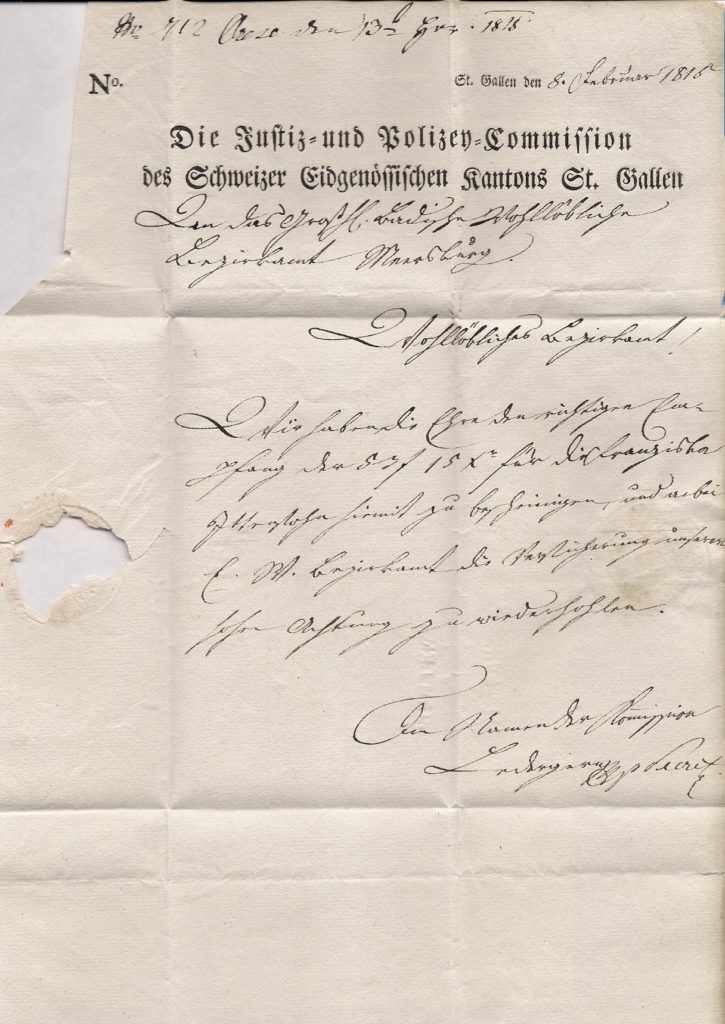 No 712 den 13n 1815
No. St. Gallen den 8. Februar 1815
Die Justiz- und Polizey-Commission
des Schweizer Eidgenössischen Kantons St. Gallen
An das Großh. Badische Wohllöbliche
Bezirksamt Meersburg.
Wohllöbliches Bezirksamt!
Wir haben die Ehre den richtigen Em-
pfang der 53 f 15 Xr für die Franziska
hiemit zu bescheinigen, und anbei
E. W. Bezirksamt die Versicherung unserer
hohen Achtung zu wiederhohlen.
Im Namen der Kommission